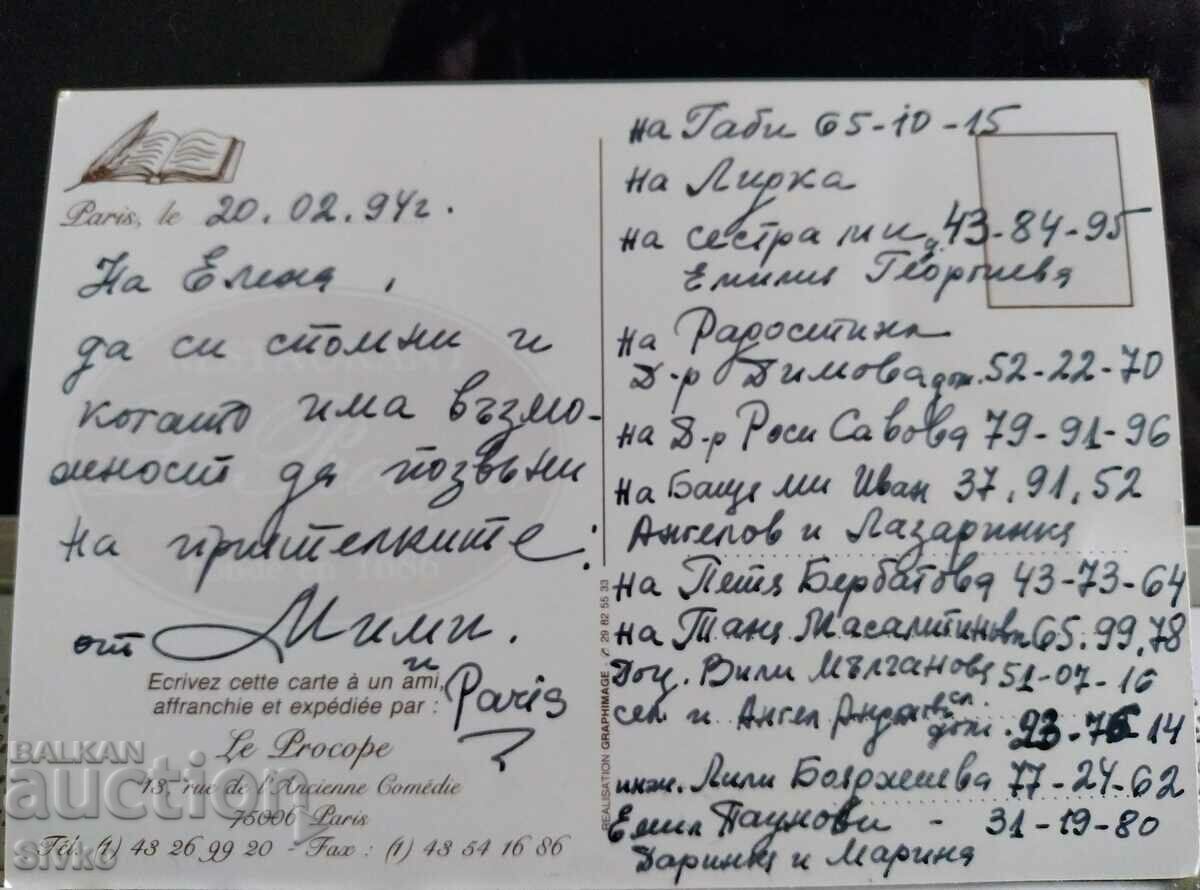 Paris, le 20.02.94г.
На Елена,
да си спомни и
когато има възмо-
жност да позвъни
на приятелките:
от Мими.
и Paris
Ecrivez cette carte à un ami,
affranchie et expédiée par :
Le Procope
13, rue de l'Ancienne Comédie
75006 Paris
Tél. (1) 43 26 99 20 - Fax : (1) 43 54 16 86
RESTAURANT
Le Procope
1686
REALISATION GRAPHIMAGE 29 82 55 33
на Габи 65-10-15
на Лирка
на сестра ми д. 43-84-95
Емилия Георгиева
на Радостина
Д-р Димова дом. 52-22-70
на Д-р Роси Савова 79-91-96
на Баща ми Иван 37,91,52
Ангелов и Лазаринка
на Петя Бербатова 43-73-64
на Таня Масалитинова 65.99,78
Доц. Вили Мълчанова 51-07-16
сем. и Ангел сл.
дом. 14
инж. Лили Бояджиева 77-24-62
Емил Паунови - 31-19-80
Даринка и Марина
BALKAN
auction
sivko